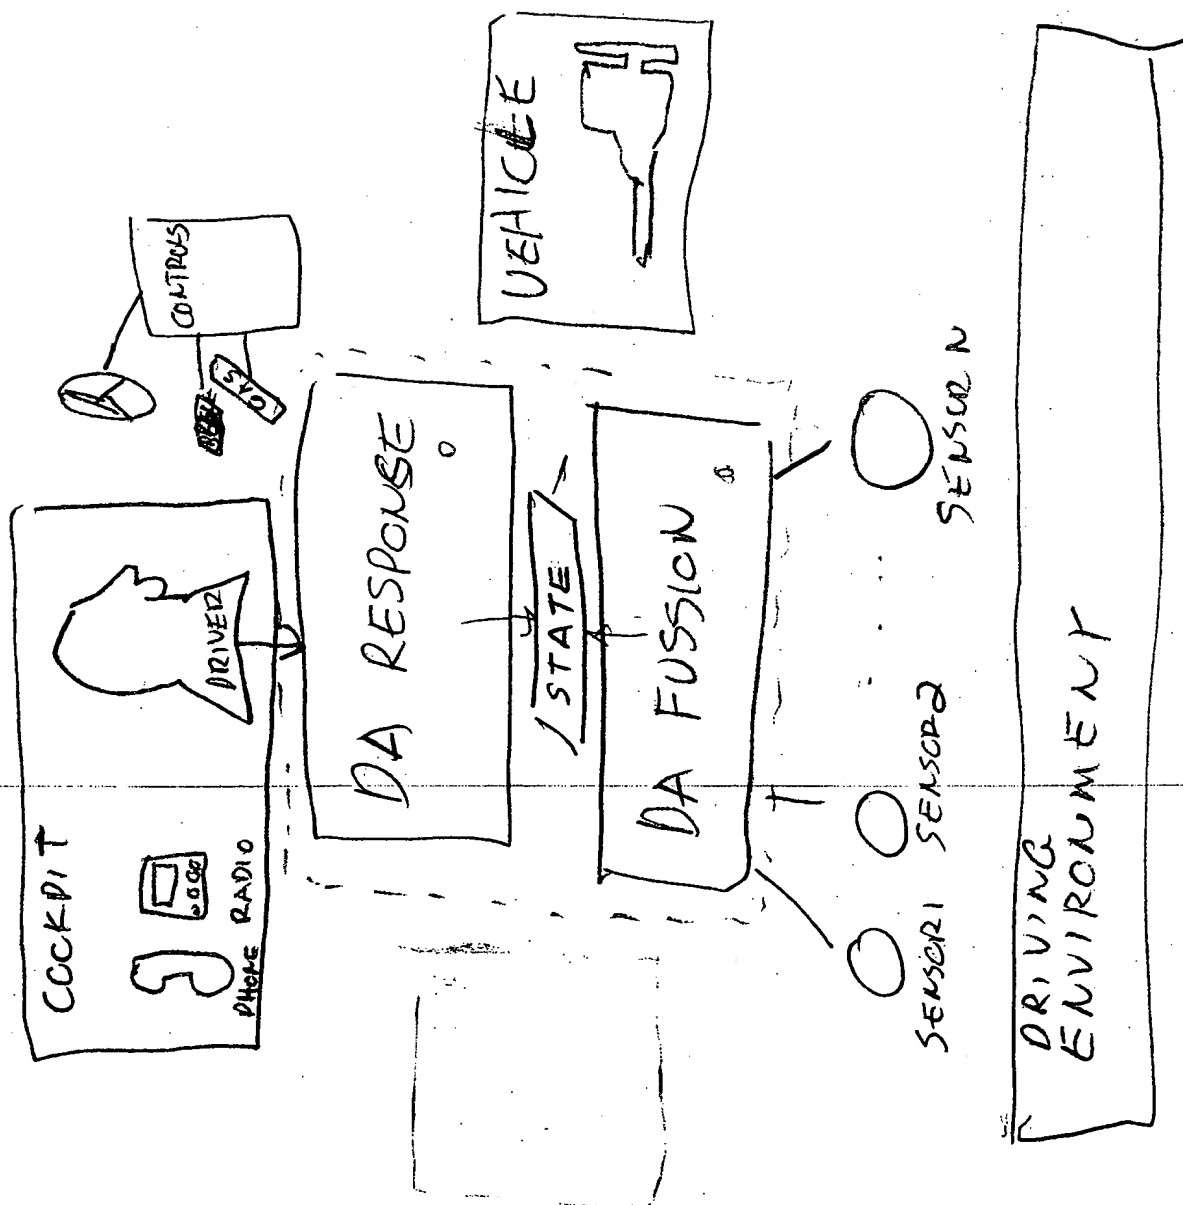 COCKPIT
PHONE
RADIO
DRIVER
CONTROLS
GAS
DA RESPONSE
STATE
VEHICLE
DA FUSSION
SENSOR1
SENSOR2
...
SENSOR N
DRIVING
ENVIRONMENT